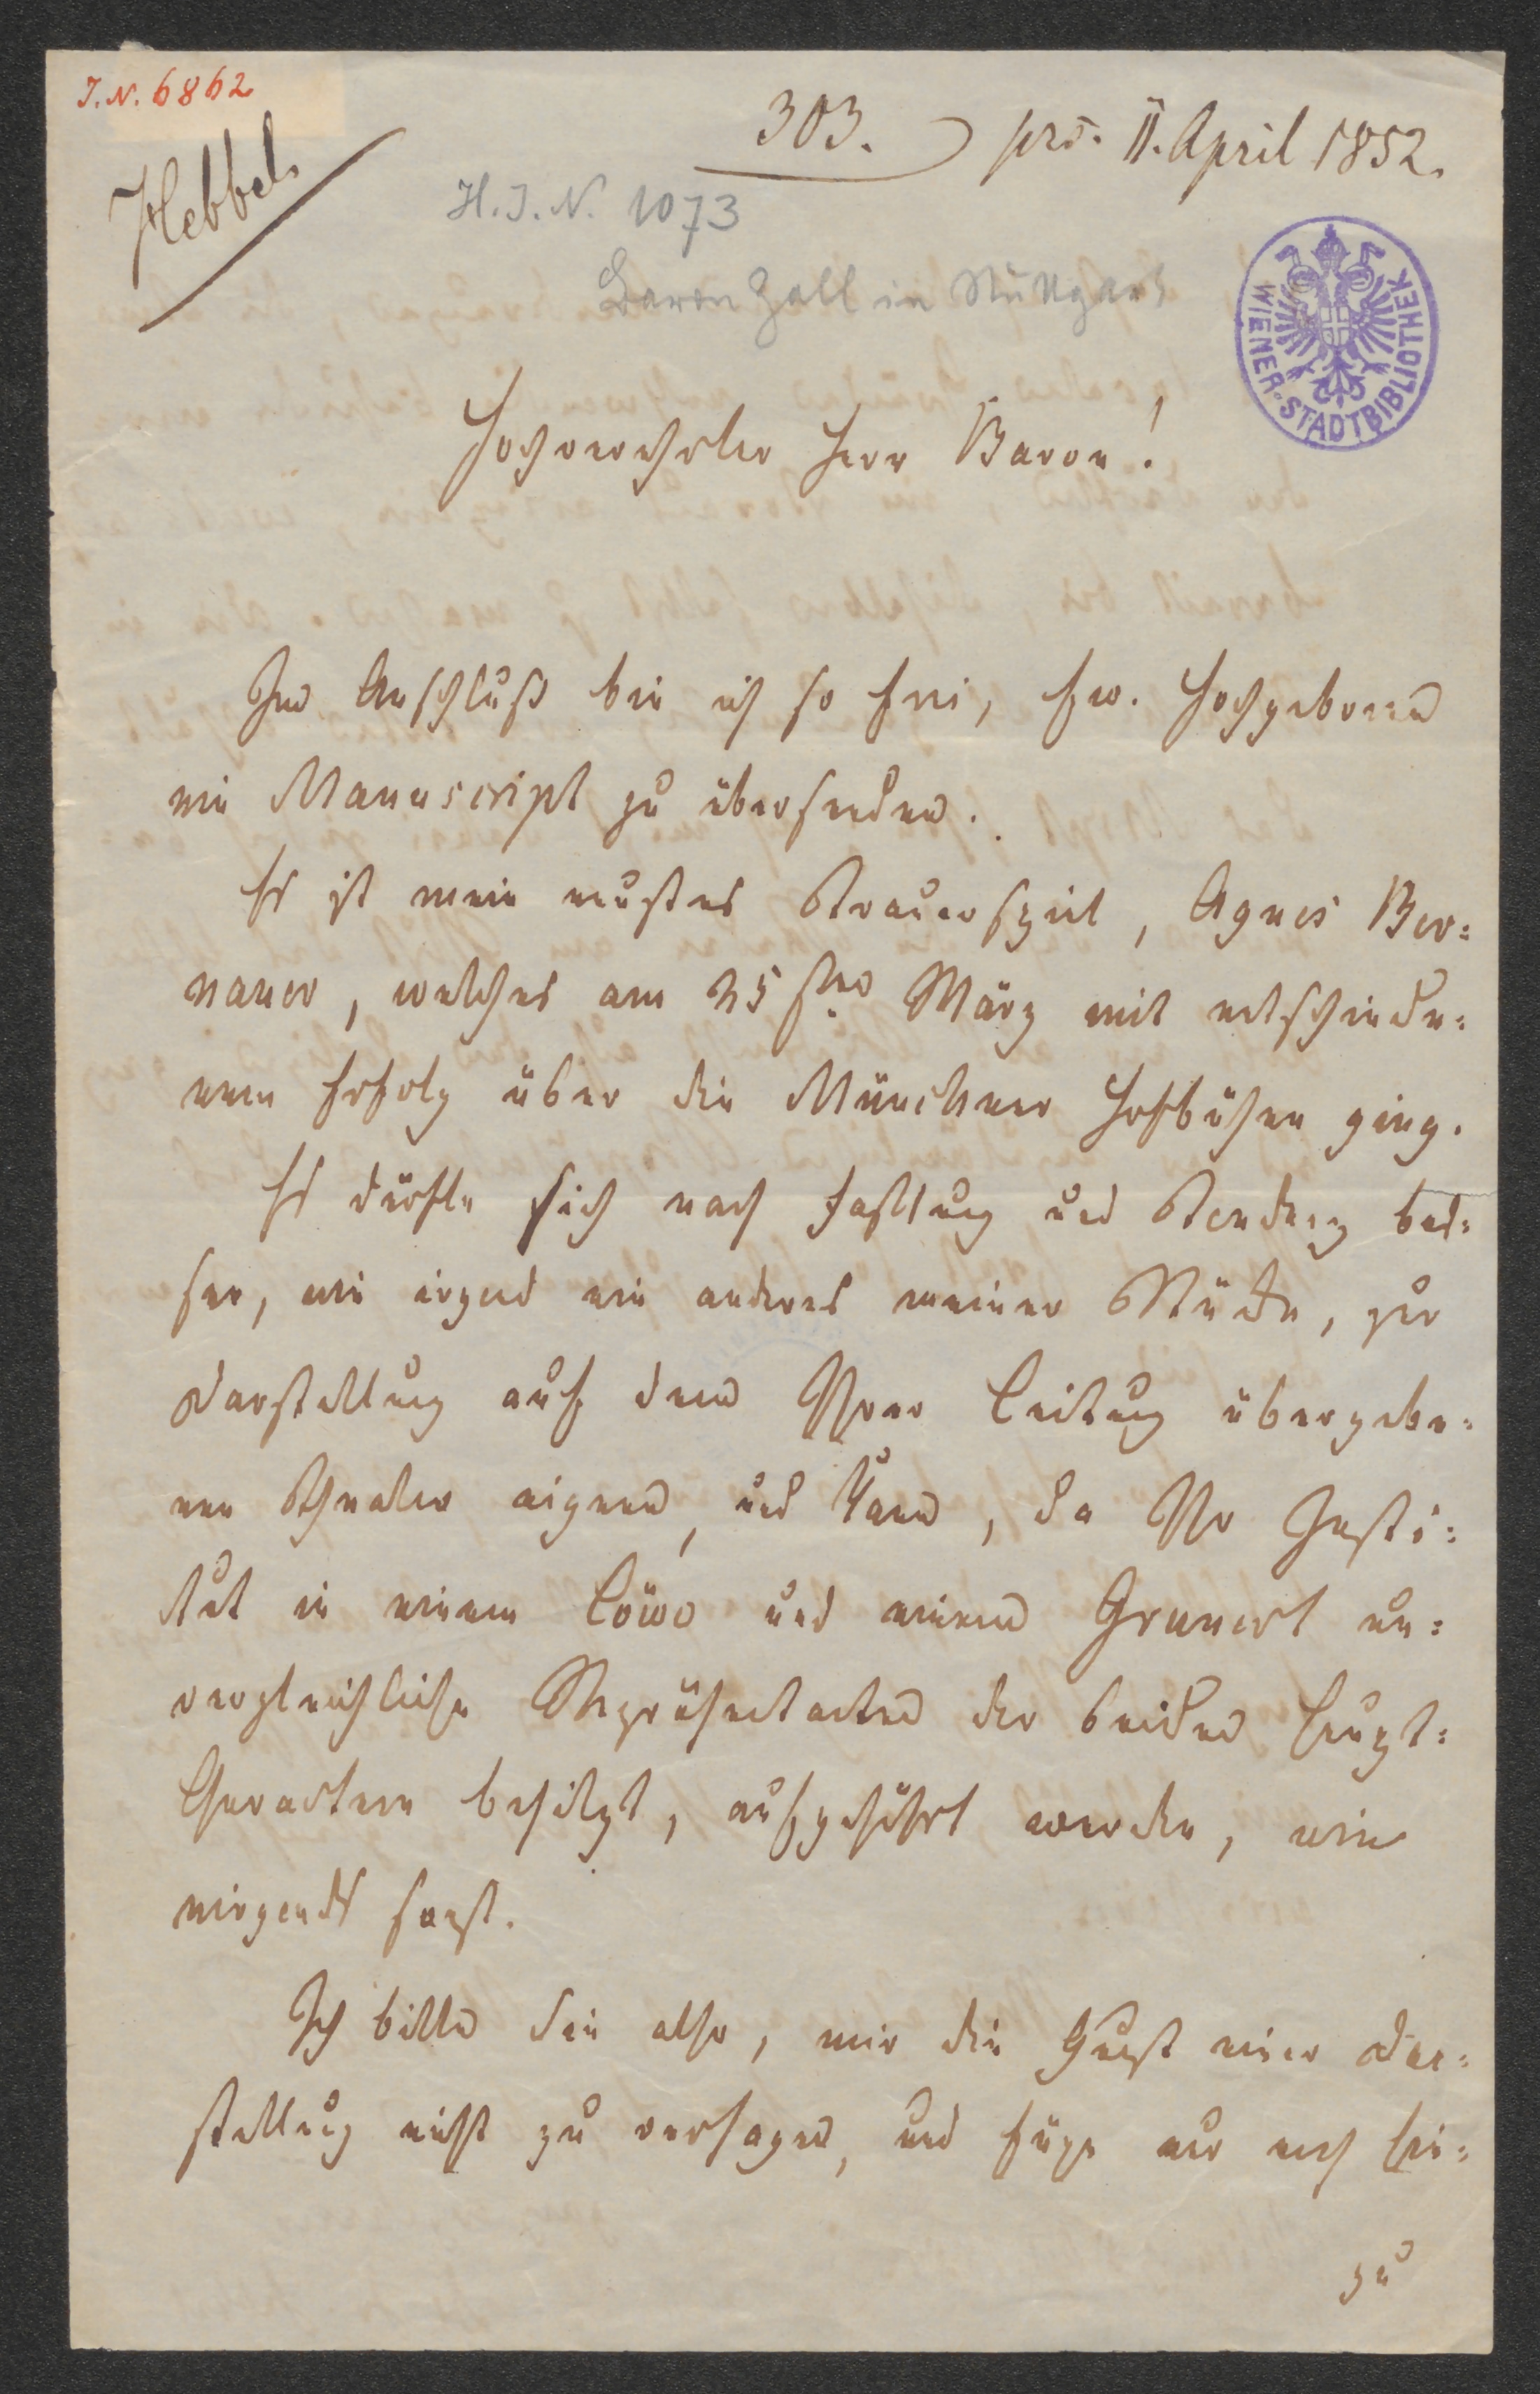 J. N. 6862
Hebbel.
303. prs. 11. April 1852.
H. J. N. 1073
Baron Gall in Stuttgart
WIENER-STADTBIBLIOTHEK
Hochverehrter Herr Baron!
Im Anschluß bin ich so frei, Ew. Hochgeboren
ein Manuscript zu übersenden.
Es ist mein neustes Trauerspiel, Agnes Ber-
nauer, welches am 25sten März mit entschiede-
nem Erfolg über die Münchner Hofbühne ging.
Es dürfte sich nach Fassung und Tendenz bes-
ser, wie irgend ein anderes meiner Stücke, zur
Darstellung auf dem Ihrer Leitung übergebe-
nen Theater eignen, und kann, da Ihr Insti-
tut in einem Löwe und einem Grunert un-
vergleichliche Repräsentanten der beiden Haupt-
Charactere besitzt, aufgeführt werden, wie
nirgends sonst.
Ich bitte Sie also, mir die Gunst einer Dar-
stellung nicht zu versagen, und füge nur noch hin-
zu